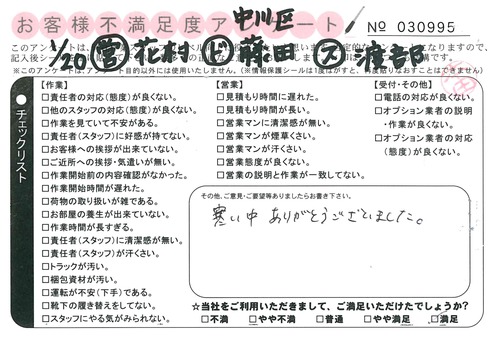 お客様不満足度アンケート
中川区
No 030995
1/20 営 花村 じ 藤田 ス 渡部
※このアンケートは、アンケート目的以外には使用いたしません。
チェックリスト
【作業】
□責任者の対応(態度)が良くない。
□他のスタッフの対応(態度)が良くない。
□作業を見ていて不安がある。
□責任者(スタッフ)に好感が持てない。
□お客様への挨拶が出来ていない。
□ご近所への挨拶・気遣いが無い。
□作業開始前の内容確認がなかった。
□作業開始時間が遅れた。
□荷物の取り扱いが雑である。
□お部屋の養生が出来ていない。
□作業時間が長すぎる。
□責任者(スタッフ)に清潔感が無い。
□責任者(スタッフ)が汗くさい。
□トラックが汚い。
□梱包資材が汚い。
□運転が不安(下手)である。
□靴下の履き替えをしてない。
□スタッフにやる気がみられない。
【営業】
□見積もり時間に遅れた。
□見積もり時間が長い。
□営業マンに清潔感が無い。
□営業マンが煙草くさい。
□営業マンが汗くさい。
□営業態度が良くない。
□営業の説明と作業が一致してない。
【受付・その他】
□電話の対応が良くない。
□オプション業者の説明
・作業が良くない。
□オプション業者の対応
(態度)が良くない。
その他、ご意見・ご要望等ありましたらお書き下さい。
寒い中 ありがとうございました。
☆当社をご利用いただきまして、ご満足いただけたでしょうか?
□不満 □やや不満 □普通 □やや満足 □満足